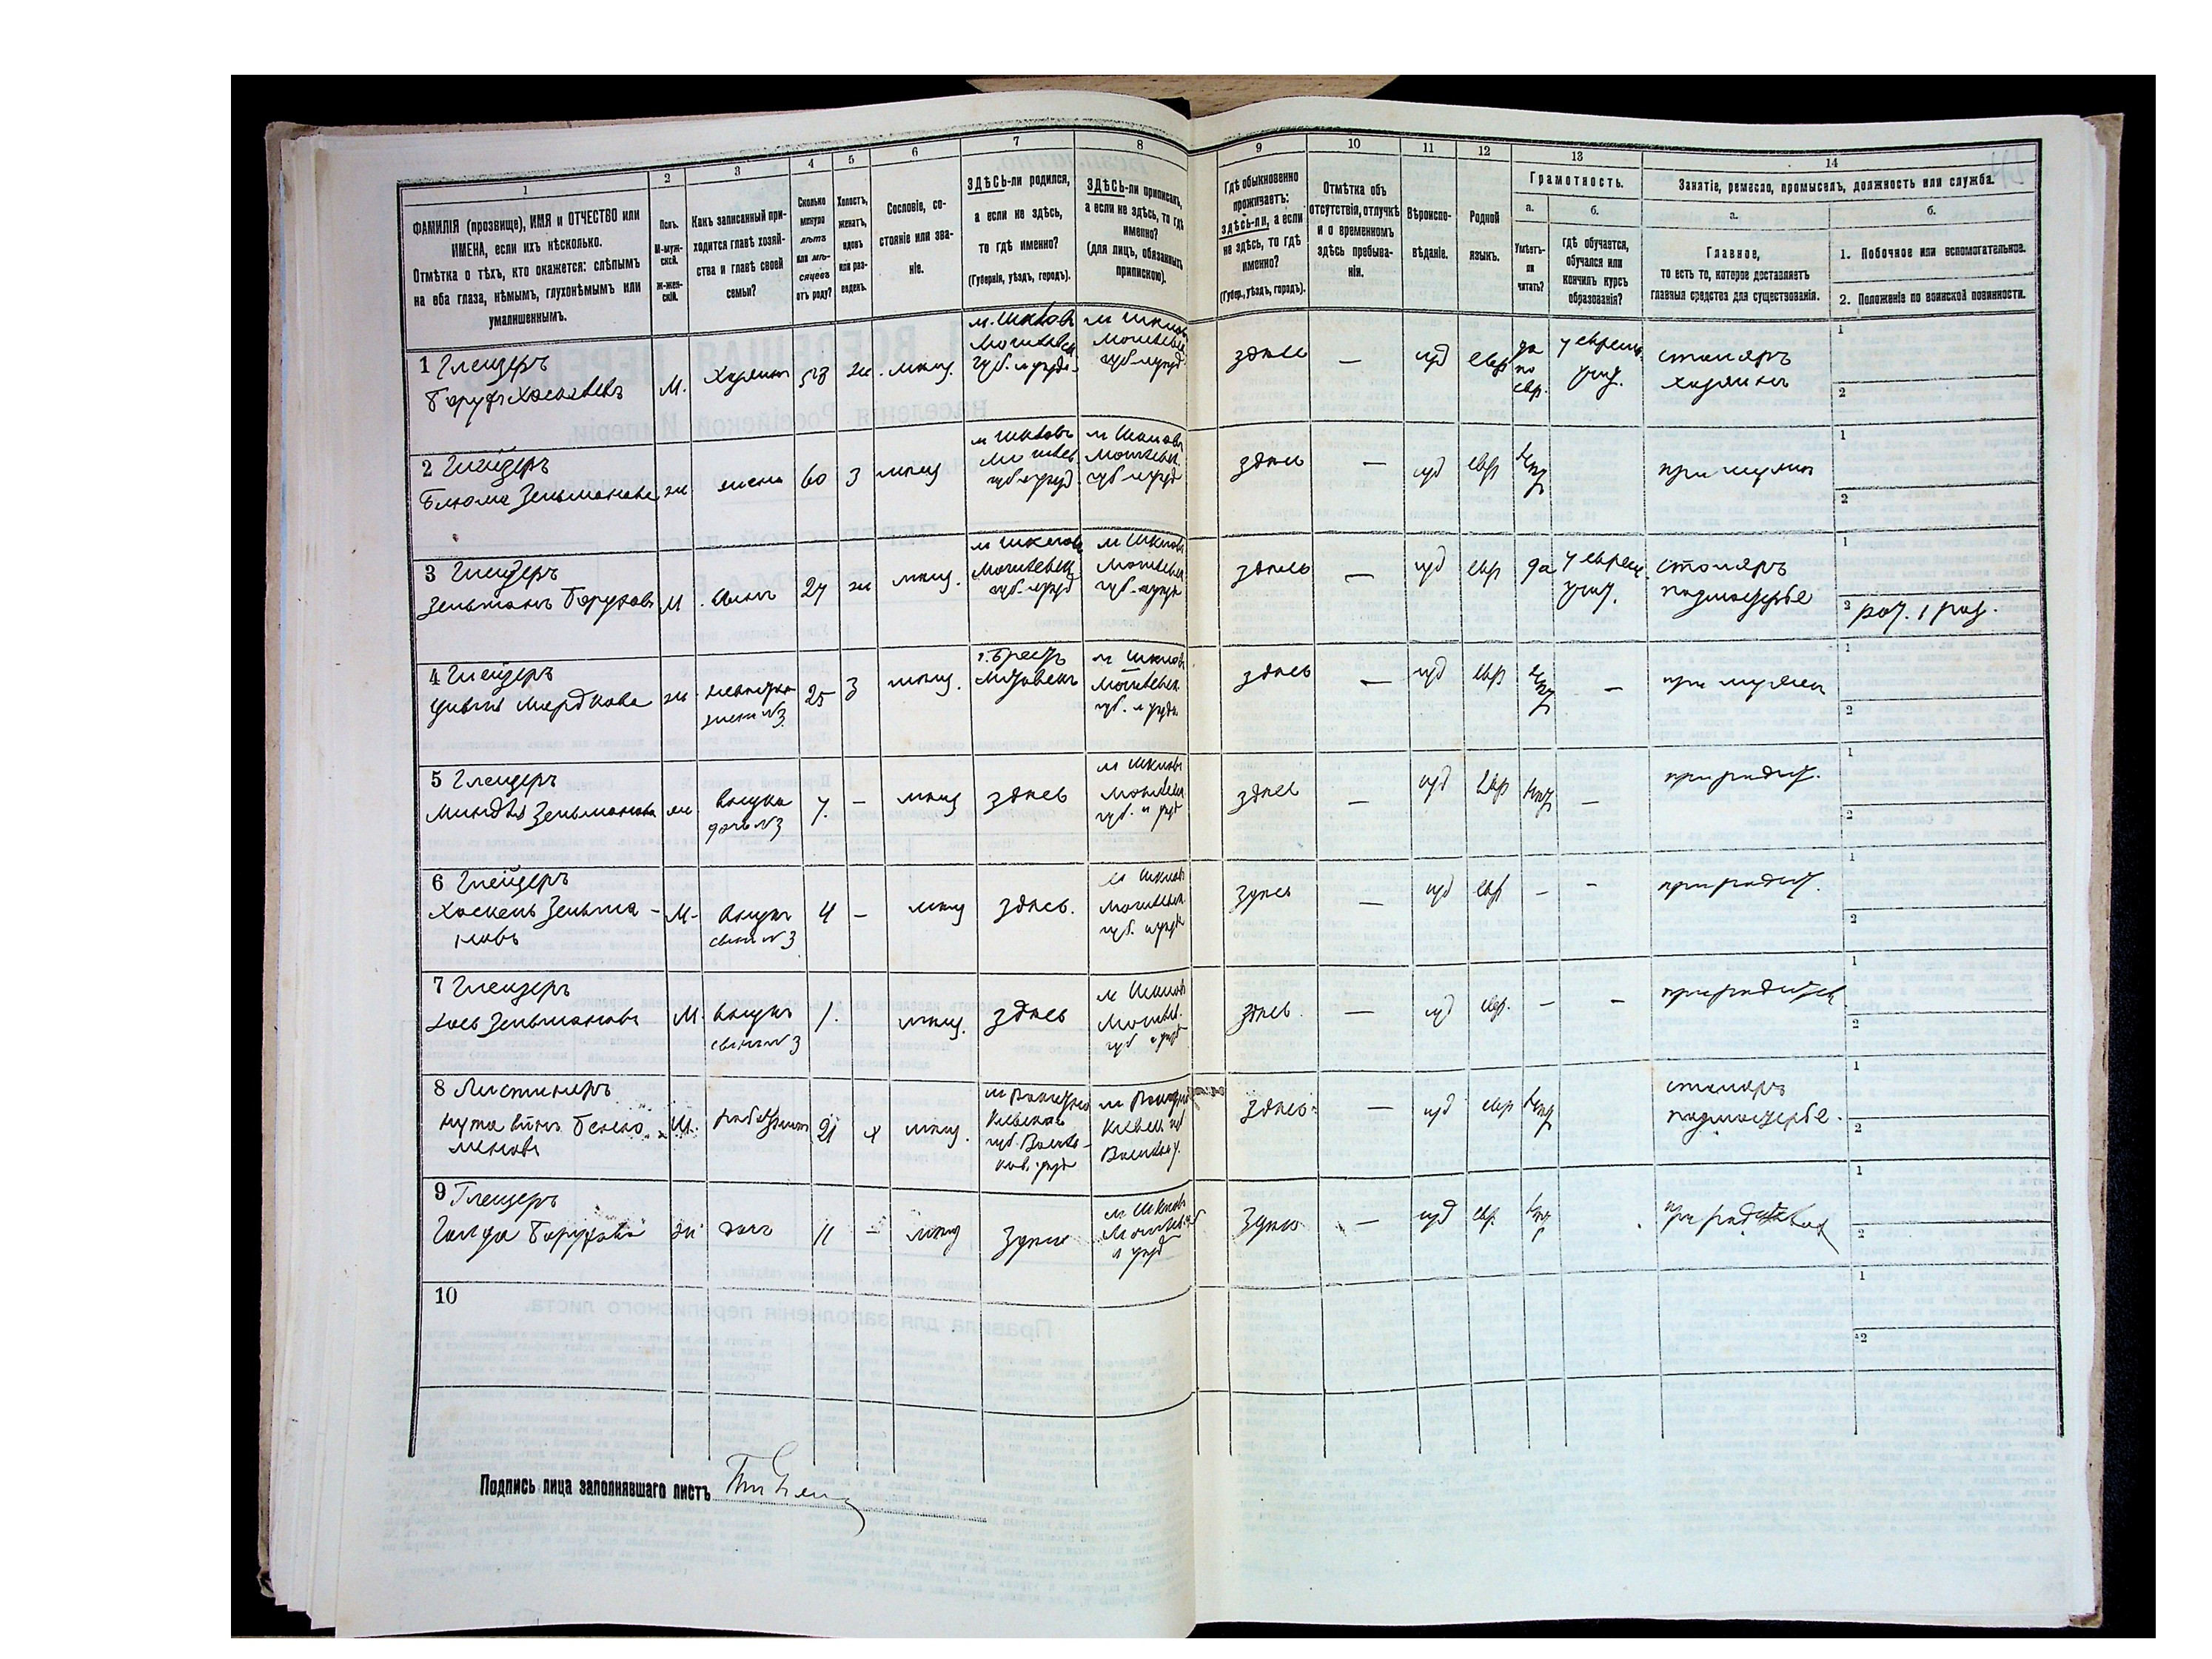 1
2
3
4
5
6
7
8
9
10
11
12
13
14
ФАМИЛІЯ (прозвище), ИМЯ и ОТЧЕСТВО или
ИМЕНА, если ихъ нѣсколько.
Отмѣтка о тѣхъ, кто окажется: слѣпымъ
на оба глаза, нѣмымъ, глухонѣмымъ или
умалишеннымъ.
Полъ.
М-муж-
ской.
Ж-жен-
скій.
Какъ записанный при-
ходится главѣ хозяй-
ства и главѣ своей
семьи?
Сколько
минуло
лѣтъ
или мѣ-
сяцевъ
отъ роду?
Холостъ,
женатъ,
вдовъ
или раз-
веденъ.
Сословіе, со-
стояніе или зва-
ніе.
ЗДѢСЬ-ли родился,
а если не здѣсь,
то гдѣ именно?
(Губернія, уѣздъ, городъ).
ЗДѢСЬ-ли приписанъ,
а если не здѣсь, то гдѣ
именно?
(для лицъ, обязанныхъ
припискою).
Гдѣ обыкновенно
проживаетъ:
здѣсь-ли, а если
не здѣсь, то гдѣ
именно?
(Губер., уѣздъ, городъ).
Отмѣтка объ
отсутствіи, отлучкѣ
и о временномъ
здѣсь пребыва-
ніи.
Вѣроиспо-
вѣданіе.
Родной
языкъ.
Грамотность.
а.
Умѣетъ-
ли
читать?
б.
гдѣ обучается,
обучался или
кончилъ курсъ
образованія?
Занятіе, ремесло, промыселъ, должность или служба.
а.
Главное,
то есть то, которое доставляетъ
главныя средства для существованія.
б.
1. Побочное или вспомогательное.
2. Положеніе по воинской повинности.
1 Глейзеръ
Борухъ Хаскелевъ
М.
Хозяинъ
ж.
мѣщ.
м. Шкловъ
Могилевск.
губ. и уезда
м Шкловъ
Могилевск
губ. и уезд
здѣсь
—
иуд
евр
да
по
евр.
у еврейс.
учит.
столяръ
хозяинъ
1
2
2 Глейзеръ
Блюма Зельманова
ж
жена
60
З
мѣщ
м Шкловъ
Могилев
губ и уезд
м Шкловъ
Могилевск.
губ и уезд
здѣсь
—
иуд
евр
нѣт
при мужѣ
1
2
3 Глейзеръ
Зельманъ Боруховъ
М.
Сынъ
27
ж
мѣщ.
м Шкловъ
Могилевск
губ. и уезд
м Шкловъ
Могилевск
губ. и уезда
здѣсь
—
иуд
евр
да
у еврейс.
учит.
столяръ
подмастерье
1
2
4 Глейзеръ
Цивья Мордкова
ж
невѣстка
жена №3
25
З
мѣщ.
г. Брестъ
Литовскъ
м Шкловъ
Могилевск.
губ. и уезда
здѣсь
—
иуд
евр
нѣт
—
при мужѣ
1
2
5 Глейзеръ
Зельманова
ж.
внучка
дочь №3
7.
—
мѣщ
здѣсь
м Шкловъ
Могилевск
губ. и уезд
здѣсь
—
иуд
евр
нѣт
—
при родит.
1
2
6 Глейзеръ
Хаскель Зельма-
новъ
М.
внукъ
сынъ №3
4
—
мѣщ
здѣсь.
м Шкловъ
Могилевск
губ. и уезда
здѣсь
—
иуд
евр
-
-
при родит.
1
2
7 Глейзеръ
Зельмановъ
М.
внукъ
сынъ №3
1.
мѣщ.
здѣсь
м Шкловъ
Могилев.
губ и уезд
здѣсь.
—
иуд
евр.
—
—
при родител
1
2
8
М.
работникъ
21
х
мѣщ.
здѣсь
—
иуд
евр
нѣт
столяръ
подмастерье.
1
2
9 Глейзеръ
Голда Борухова
ж
дочь
11
—
мѣщ
здѣсь
м Шкловъ
Могилевск
и уезд
здѣсь
—
иуд
евр.
нѣт
при родителях
1
2
10
1
2
Подпись лица заполнявшаго листъ